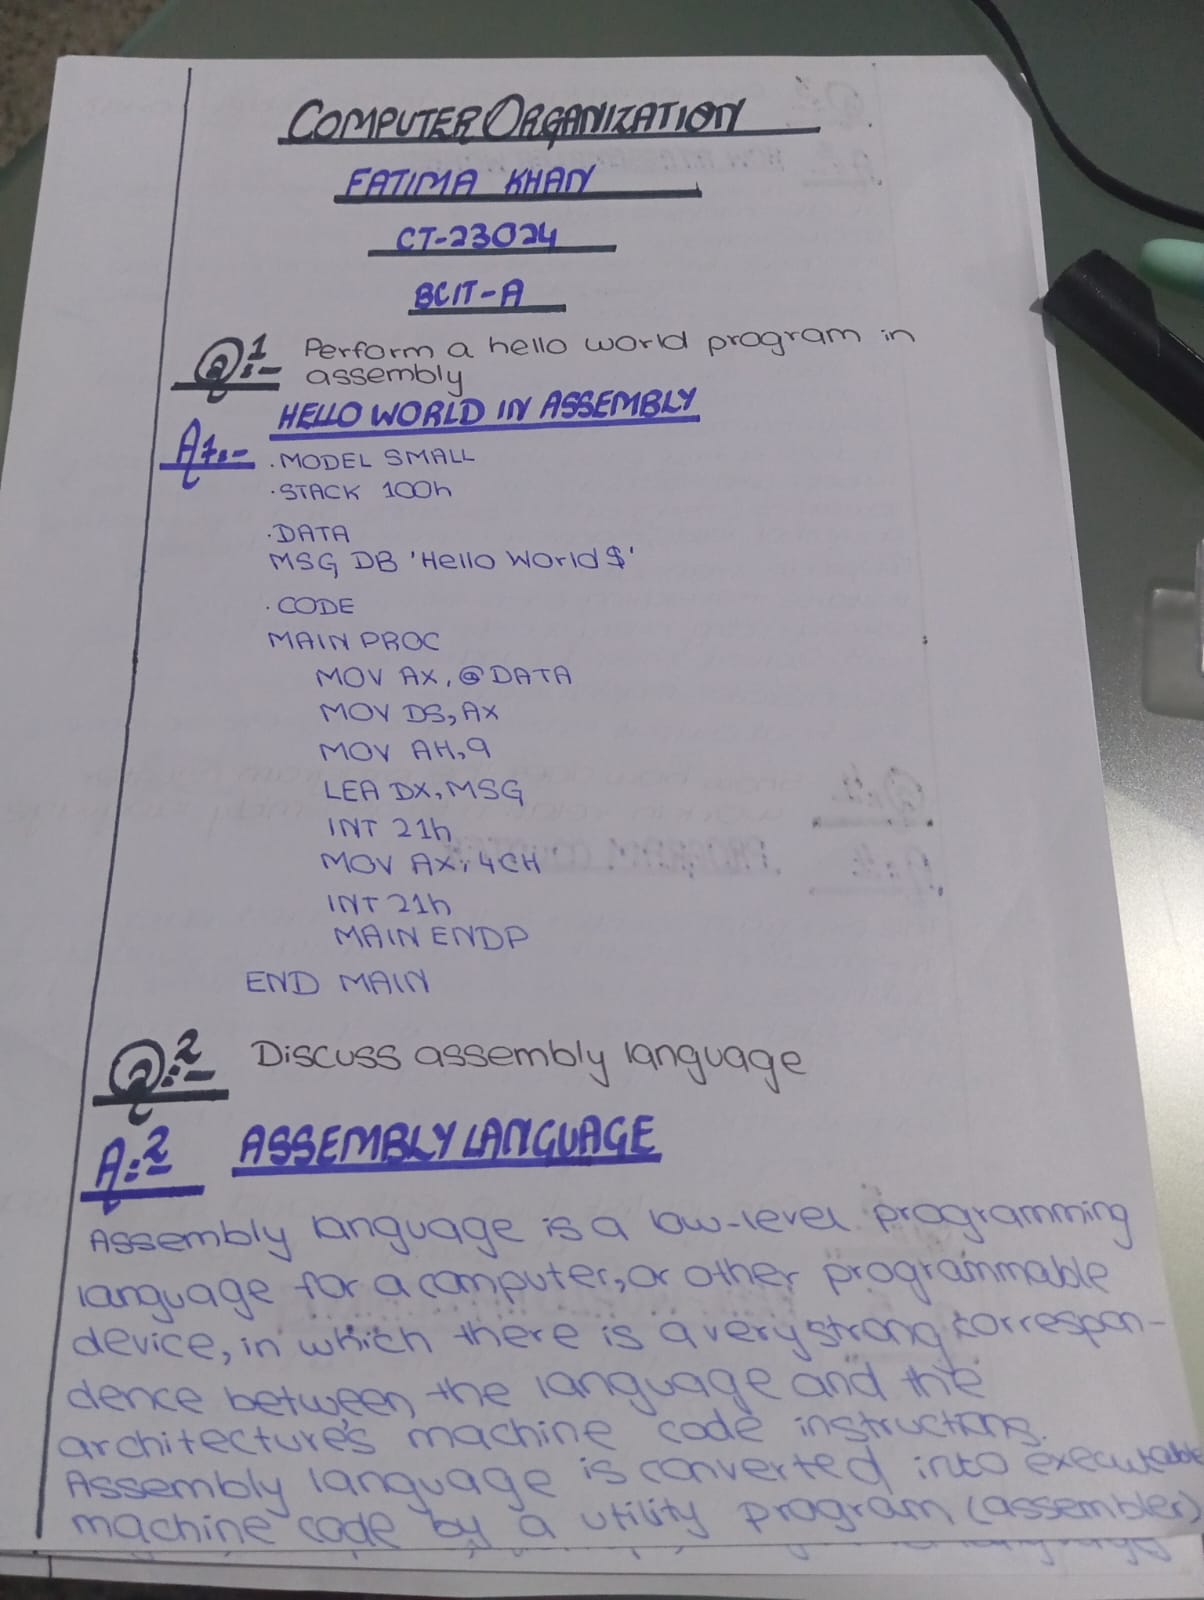 COMPUTER ORGANIZATION
FATIMA KHAN
CT-23024
BCIT-A
Q1:- Perform a hello world program in
assembly
HELLO WORLD IN ASSEMBLY
A1:- .MODEL SMALL
.STACK 100h
.DATA
MSG DB 'Hello World$'
.CODE
MAIN PROC
MOV AX, @DATA
MOV DS, AX
MOV AH, 9
LEA DX, MSG
INT 21h
MOV AX, 4CH
INT 21h
MAIN ENDP
END MAIN
Q:2- Discuss assembly language
A:2- ASSEMBLY LANGUAGE
Assembly language is a low-level programming
language for a computer, or other programmable
device, in which there is a very strong correspon-
dence between the language and the
architecture's machine code instructions.
Assembly language is converted into executable
machine code by a utility program (assembler)